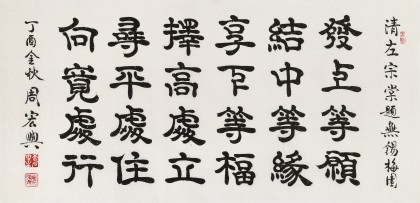 清左宗棠題無錫梅園
發上等願
結中等緣
享下等福
擇高處立
尋平處住
向寬處行
丁酉金秋 周宏興